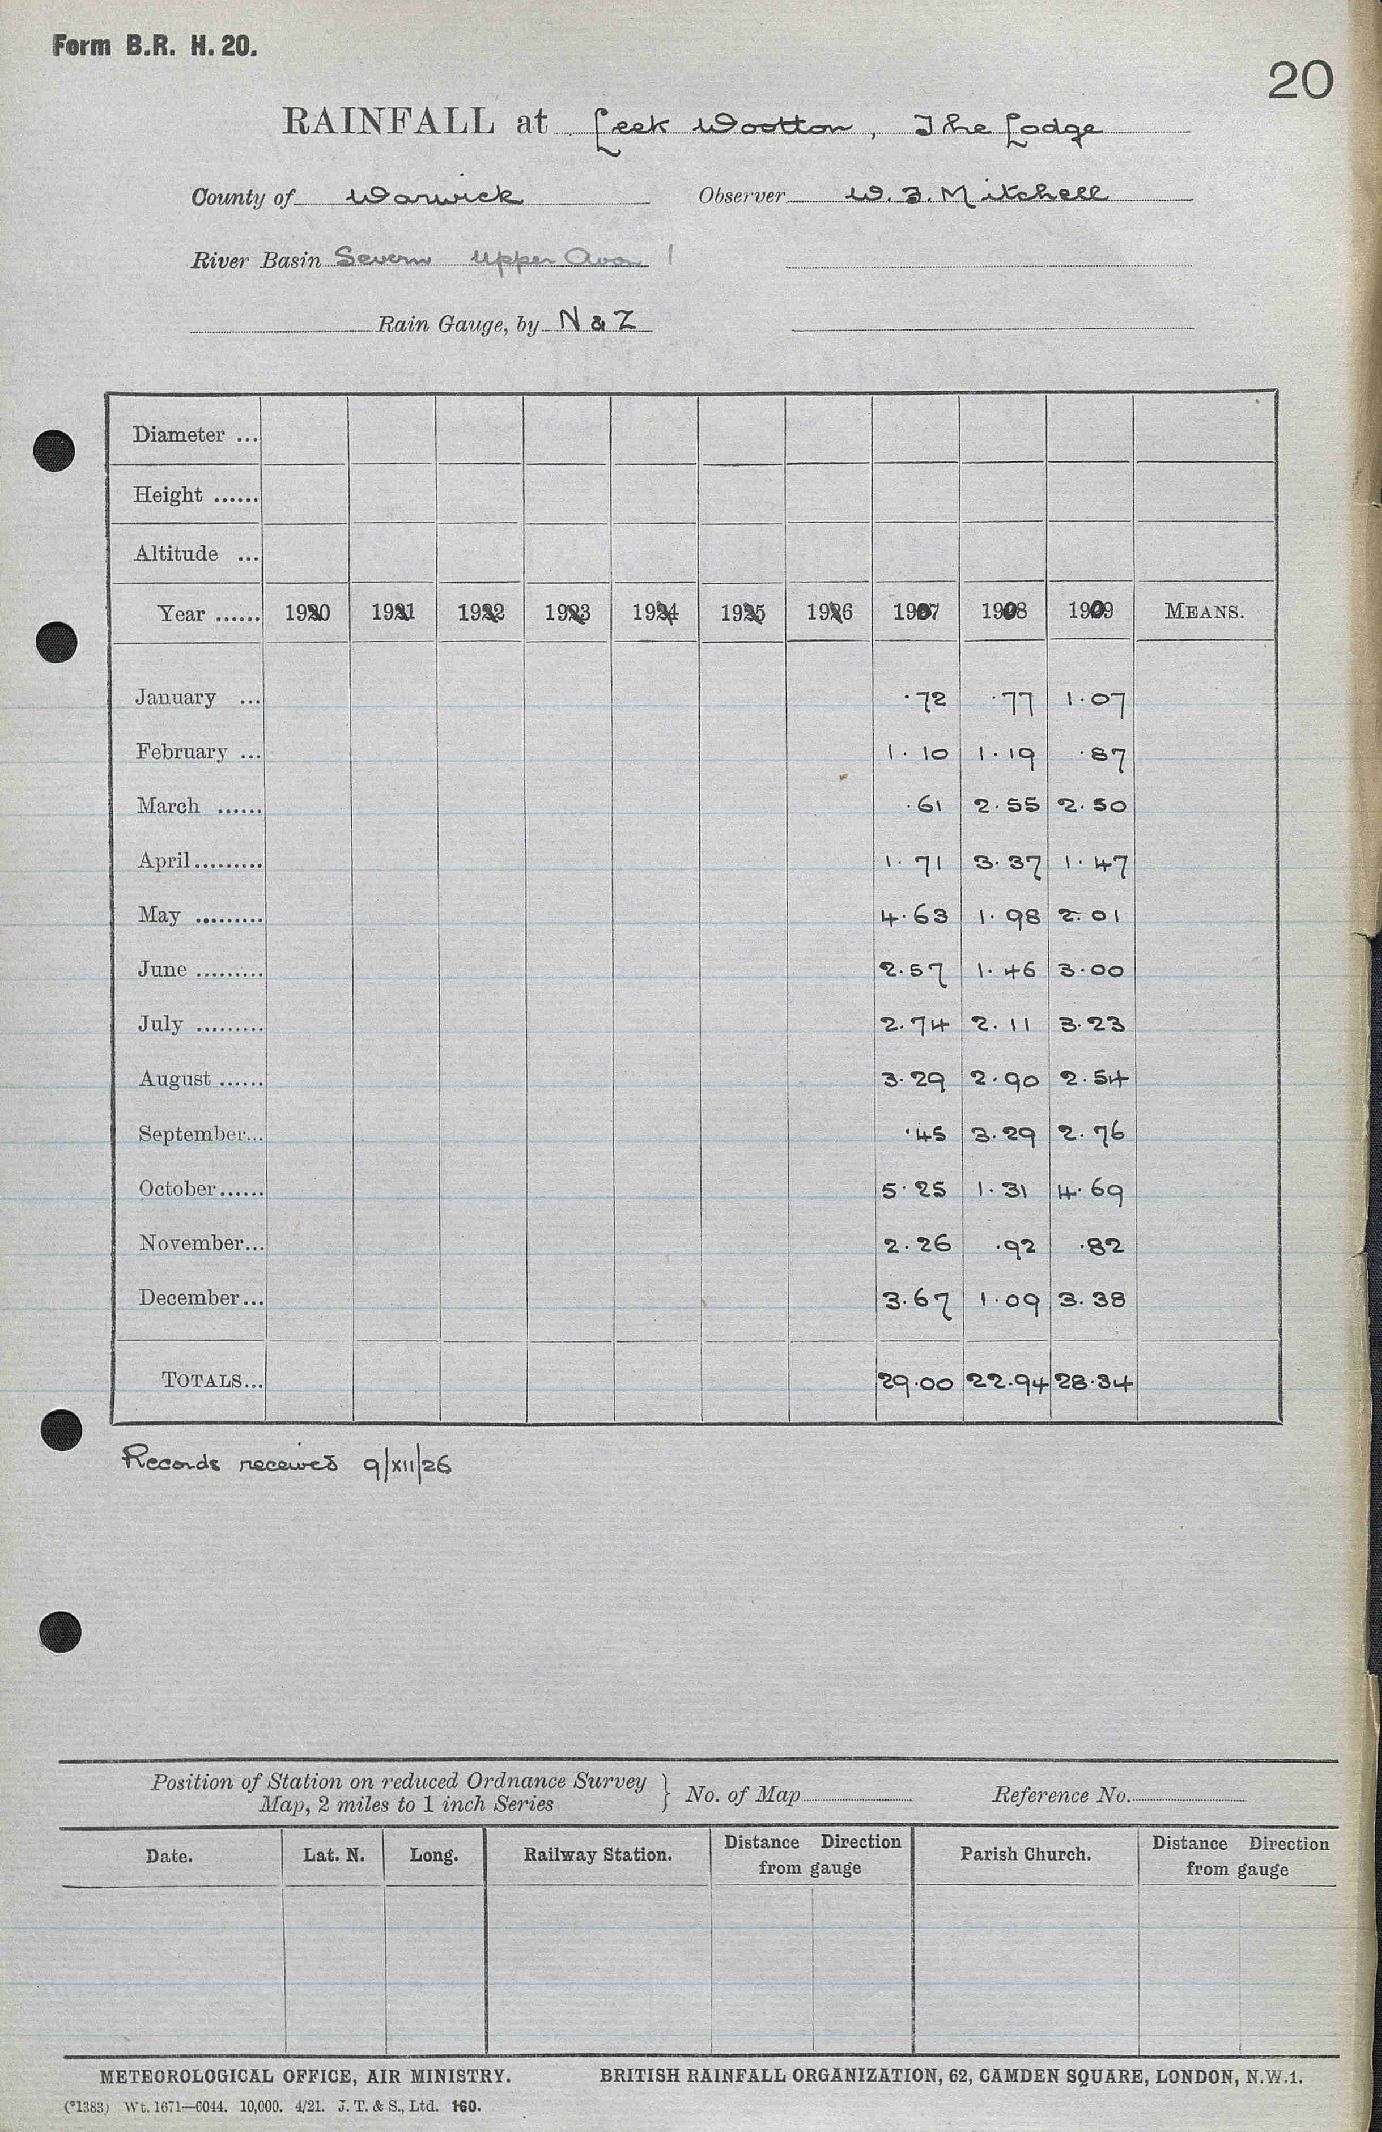 Form B.R. H. 20.
20
RAINFALL at Leek Wootton, The Lodge
County of Warwick Observer W. J. Mitchell
River Basin Severn Upper Avon 1
Rain Gauge, by N & Z
Diameter ...
Height ......
Altitude ...
Year ...... 1920 1921 1922 1923 1924 1925 1926 1907 1908 1909 MEANS.
January ... .72 .77 1.07
February ... 1.10 1.19 .87
March ...... .61 2.55 2.50
April......... 1.71 3.37 1.47
May ......... 4.63 1.98 2.01
June ......... 2.57 1.46 3.00
July ......... 2.74 2.11 3.23
August ...... 3.29 2.90 2.54
September... .45 3.29 2.76
October...... 5.25 1.31 4.69
November... 2.26 .92 .82
December... 3.67 1.09 3.38
TOTALS... 29.00 22.94 28.34
Records received 9/XII/26
Position of Station on reduced Ordnance Survey
Map, 2 miles to 1 inch Series } No. of Map Reference No.
Date. Lat. N. Long. Railway Station. Distance Direction from gauge Parish Church. Distance Direction from gauge
METEOROLOGICAL OFFICE, AIR MINISTRY. BRITISH RAINFALL ORGANIZATION, 62, CAMDEN SQUARE, LONDON, N.W.1.
(*1383) Wt. 1671—6044. 10,000. 4/21. J. T. & S., Ltd. 160.